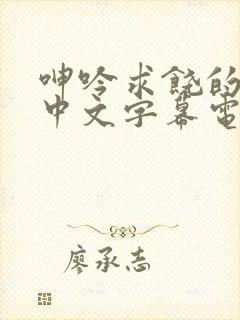 呻吟求饶的
中文字幕電
廖承志